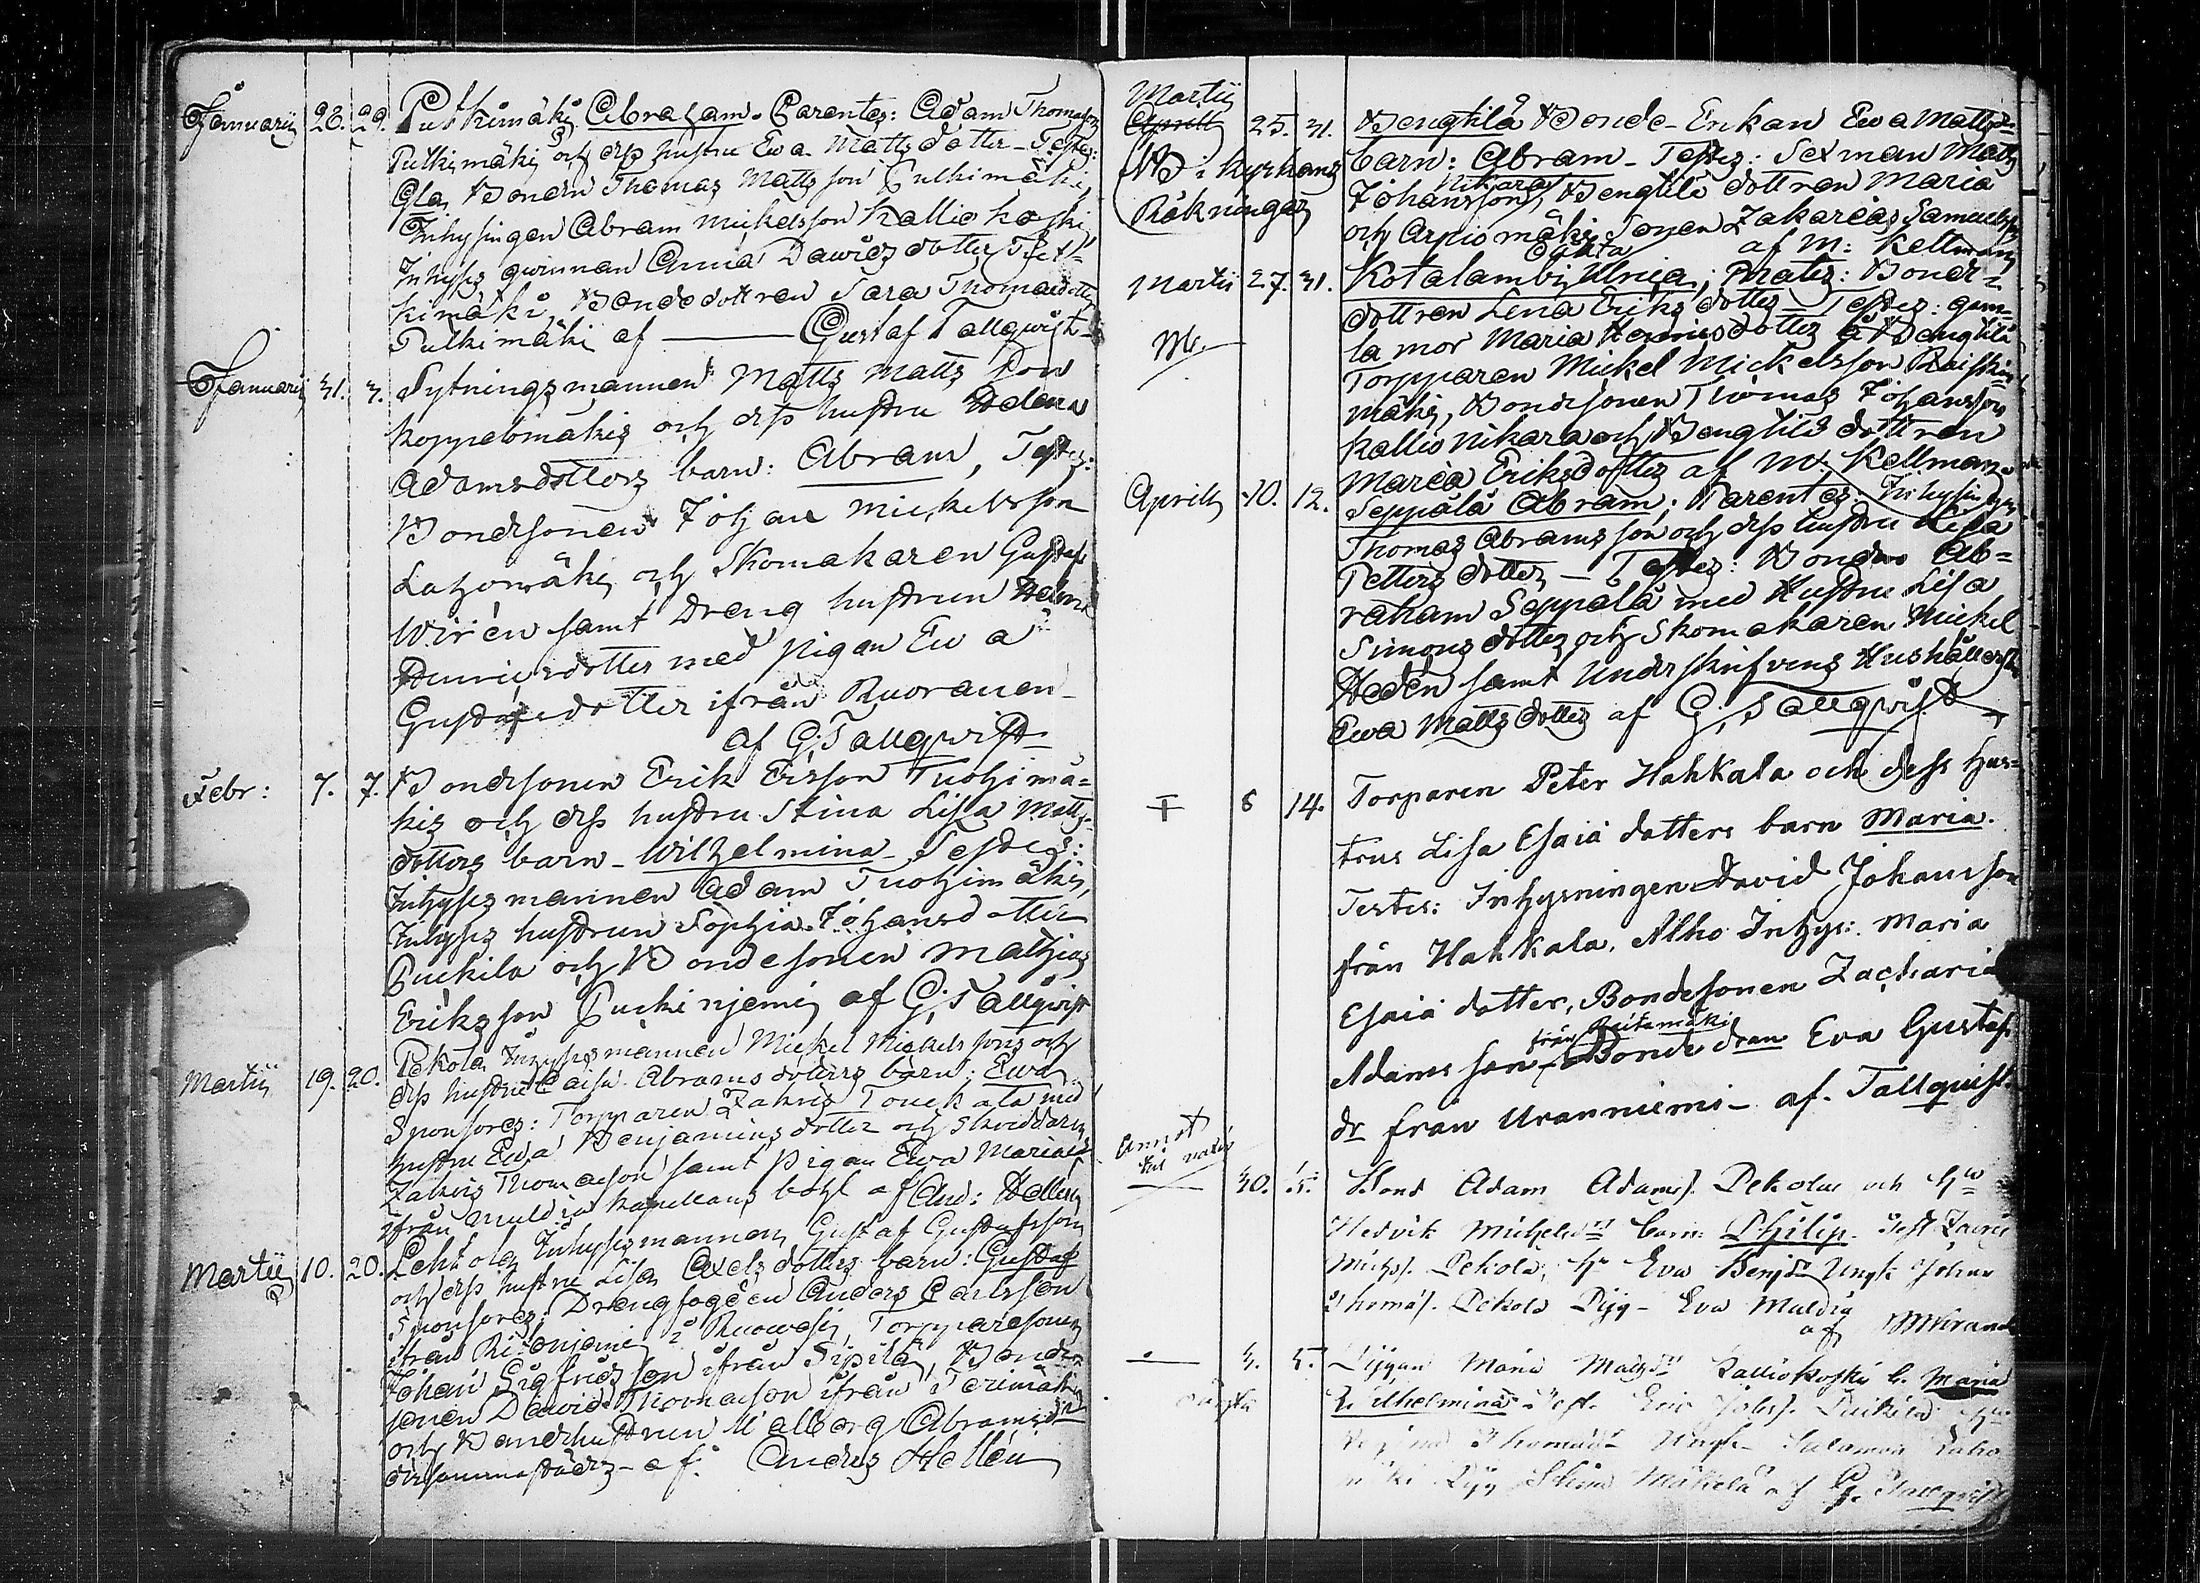 Januarii 28. 29. Putkimäki Abraham. Parentes: Adam Thomasson
Putkimäki och dess hustru Eva Mattsdotter - Testes:
Bonden Thomas Mattsson Putkimäki,
Inhysingen Abram Mickelsson Kalliokoski
Inhyses qwinnan Anna Davidsdotter Put-
kimäki, Bondedottren Sara Thomædotter
Putkimäki af — Gustaf Tallqwist
Januarii 31. 3. Nytningsmannen Matts Mattsson
Koppelomäkis och dess hustru Helena
Adamsdotters barn: Abram, Testes:
Bondesonen Johan Mickelsson
Latzomäki och Skomakaren Gustaf
Wirén samt Dreng hustrun Helena
Henricsdotter med pigan Eva
Gustafsdotter ifrån Ruoranen
af G. Tallqwist
Febr: 7. 7. Bondesonen Erik Ersson Tuohimä-
kis och dess hustru Stina Lisa Matts-
dotters barn - Wilhelmina - Testes:
Inhysesmannen Adam Tuohimäki,
Inhyses hustrun Sophia Johansdotter
Puikila och Bondesonen Mathias
Eriksson Puikiniemi af G. Tallqwist
Martii 19. 20. Pekola Inhysesmannen Mickel Mickelssons och
dess hustru Caisa Abramsdotters barn: Ewa
Sponsores: Torpparen Zakris Toukala med
hustru Ewa Benjaminsdotter och Skräddaren
Zakris Thomasson samt Pigan Ewa Mariæ
ifrån Muldia Kapellans bohl af And: Hellén
Martii 10. 20. Lehtola Inhysesmannen Gustaf Gustafsson
och dess hustru Lisa Axelsdotters barn: Gustaf
Sponsores: Drängfogden Anders Carlsson
ifrån Ristiniemi i Ruowesi, Torpparesonen
Johan Sigfridsson ifrån Sipilä, Bonde-
sonen David Thomasson ifrån
och Bondhustrun Walborg Abramsdr
dersammastädes - af. Anders Hellén
Martii
Aprill 25. 31. Bengtilä Bonde-Enkan Eva Matts-
NB i Kyrkans barn: Abram - Testes: Sexman Matts
Räkningar Johansson Nikara, Bengtilä dottren Maria
och Arpiomäki Sonen Zakarias Samuelsson
af M: Kellman
Martii 27. 31. Kotalambi oäkta Ulrica; Mater: Bonde-
dottren Lena Eriksdotter - Testes: gam-
la mor Maria Henricsdotter å Bengtilä
Torpparen Mickel Mickelsson Raiskin-
mäki, Bondesonen Thomas Johansson
Kallio Nikara och Bengtilä dottren
Maria Eriksdotter af M. Kellman
Aprill 10. 12. Seppälä Abram; Parentes: Inhysingen
Thomas Abramsson och dess hustru Lisa
Pettersdotter - Testes: Bonden Ab-
raham Seppälä med Hustru Lisa
Simonsdotter och Skomakaren Mickel
Hedén samt Underskrifvens Hushållerska
Ewa Mattsdotter af G. Tallqwist
6 14. Torparen Peter Hahkala och dess Hus-
trus Lisa Esaiä dotters barn Maria.
Testes: Inhysningen David Johansson
från Hahkala, Alho Inhys: Maria
Esaiä dotter, Bondesonen Zacharias
Adamsson från Reitamäki Bondedran Eva Gustafs
dr från Uranniemi - af. Tallquist.
30. 5. Bond Adam Adams. Pekolas och Hu
Hedvik Michelsdrs barn Philip. Test. Zacris
Michs. Pekola, Hu Eva Benjdr Ungk Johan
Thomas. Pekola Pig - Eva Muldia
af
3. 5. Pigan Maria Mattsdr Kalliokoski b. Maria
Wilhelmina Test. Eric Johs. Puikila Hu
Thomædr Ungk. Salamon
Pig Stina Mäkelä af G. Tallqwist